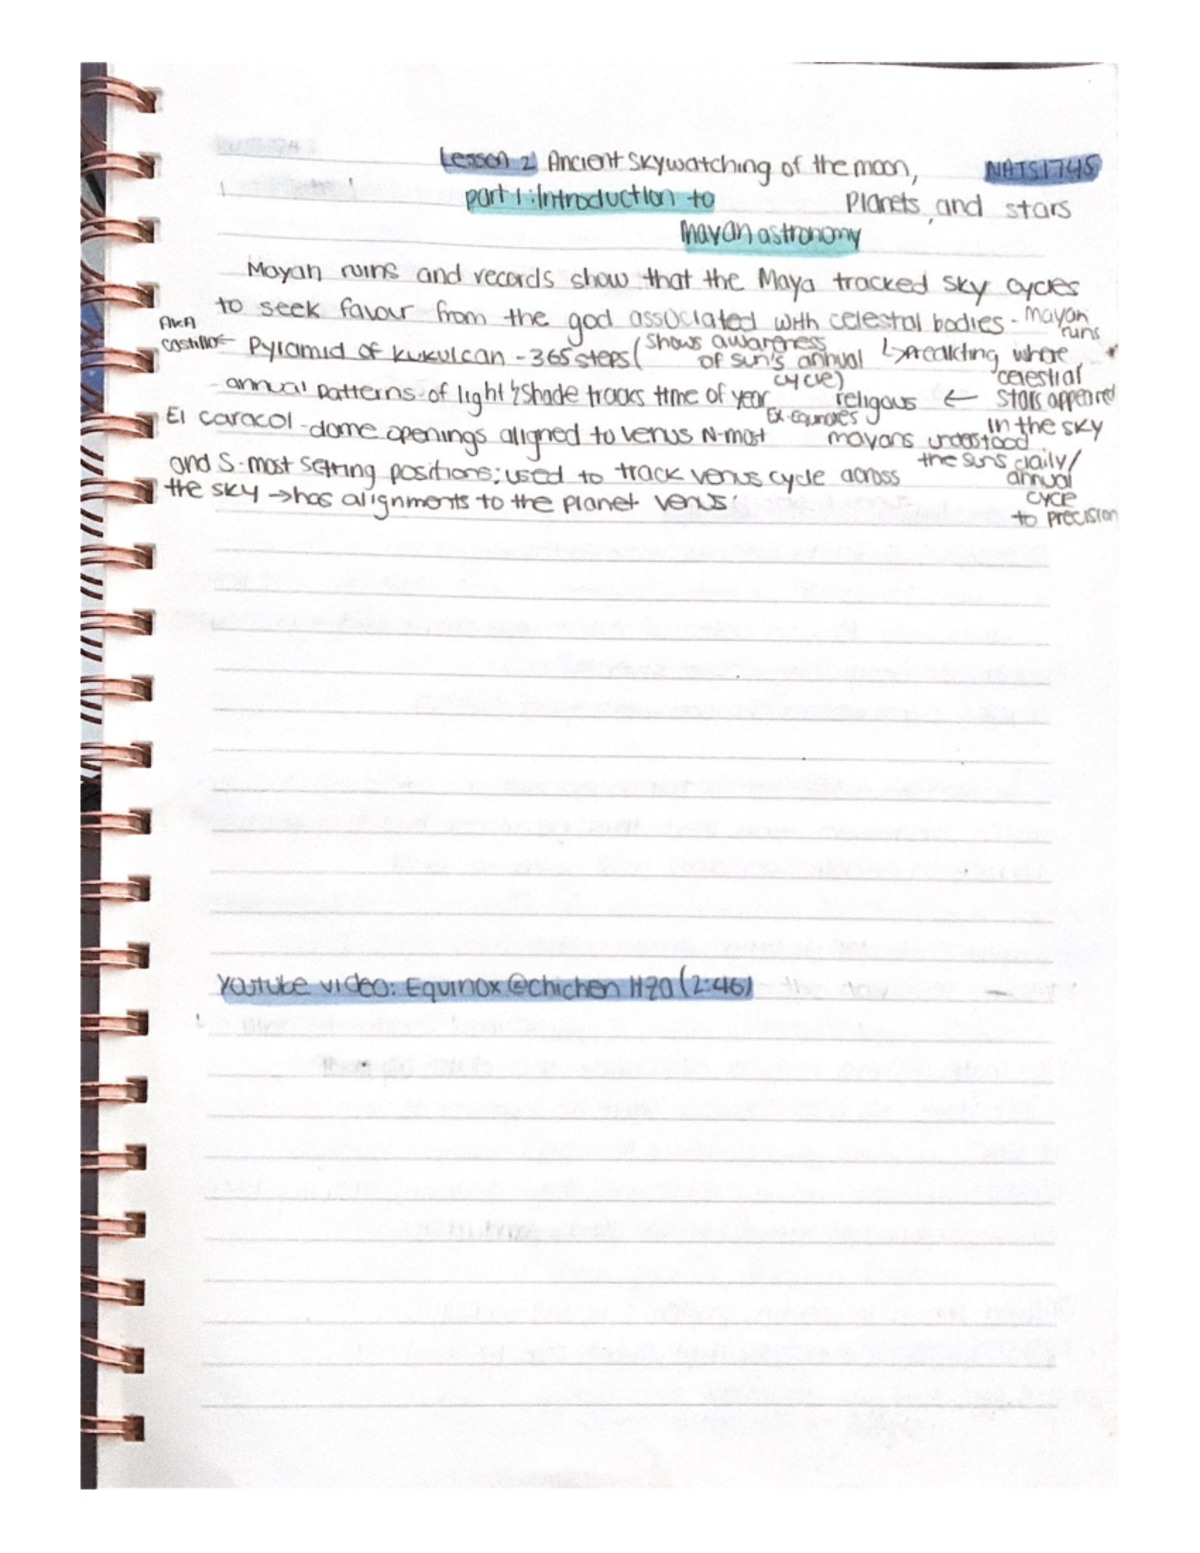 Lesson 2 Ancient Skywatching of the moon, NATS1745
part 1: Introduction to Planets, and stars
Mayan astronomy
Mayan ruins and records show that the Maya tracked sky cycles
to seek favour from the god associated with celestral bodies - mayan runs
AKA Castillo ← Pyramid of Kukulcan - 365 steps (shows awareness of sun's annual cycle)
↳ predicting where celestrial stars appeared in the sky
annual patterns of light & shade tracks time of year religous ←
Ex. Equinoxes
El Caracol - dome openings aligned to Venus N-most
mayans understood the suns daily/ annual cyce to precision
and S-most setting positions; used to track venus cycle across
the sky → has alignments to the planet venus
Youtube video: Equinox @chichen Itza (2:46)